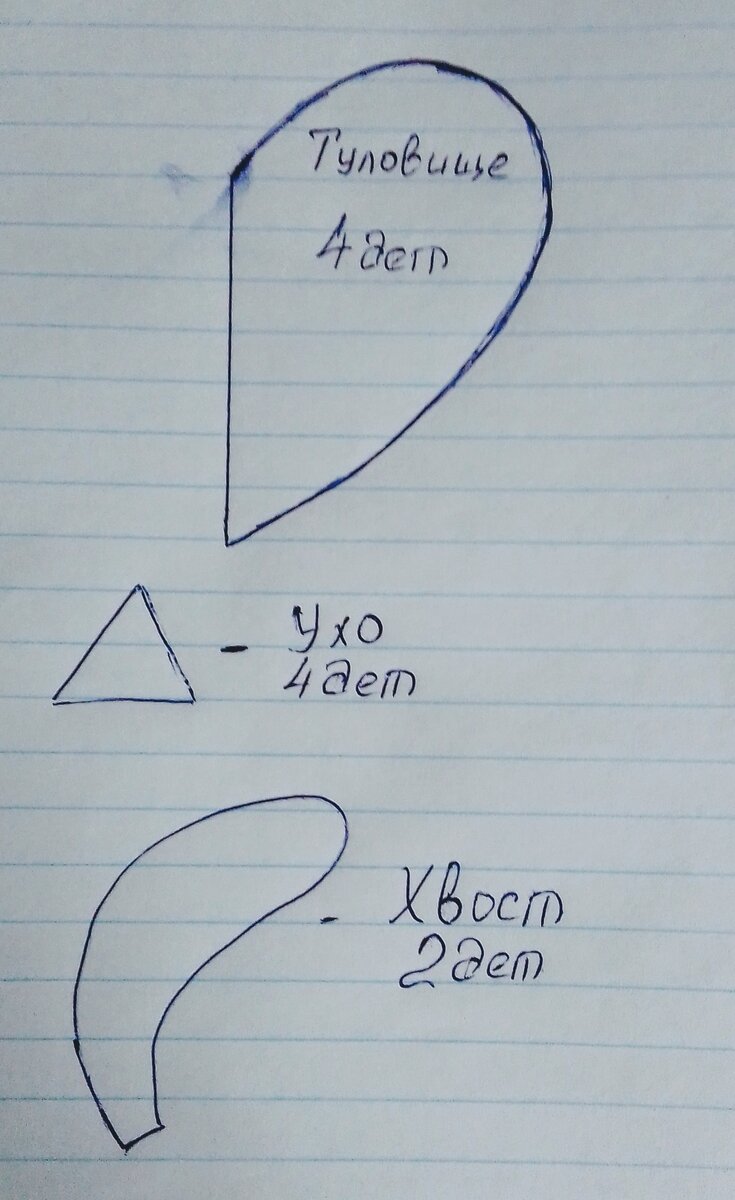 Туловище
4 дет
- Ухо
4 дет
- Хвост
2 дет